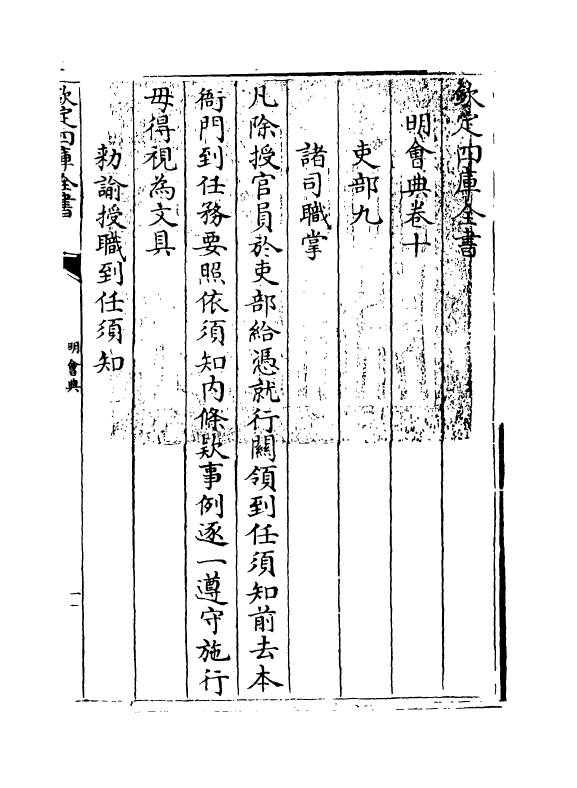 欽定四庫全書
明會典卷十
吏部九
諸司職掌
凡除授官員於吏部給憑就行關領到任須知前去本
衙門到任務要照依須知内條款事例逐一遵守施行
毋得視為文具
勅諭授職到任須知
欽定四庫全書
明會典
一